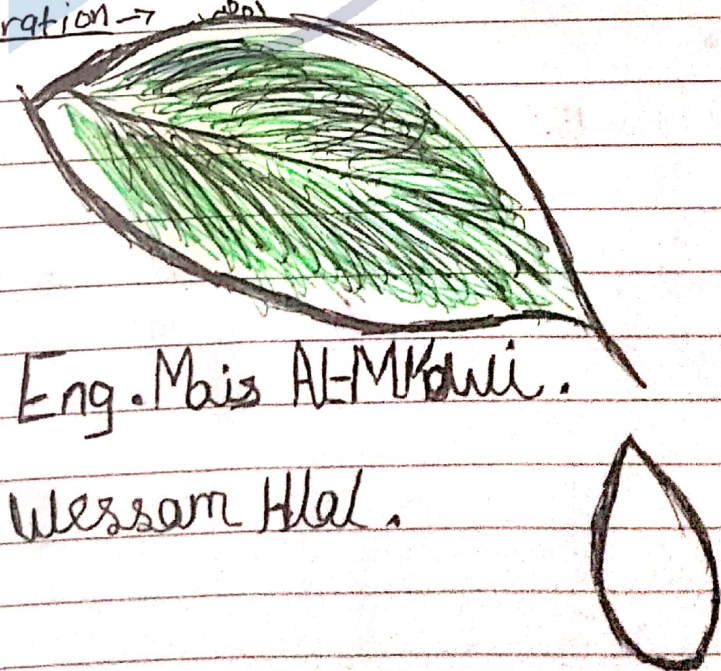 ration →
Eng. Mais Al-MKawi.
Wessam Hlal.